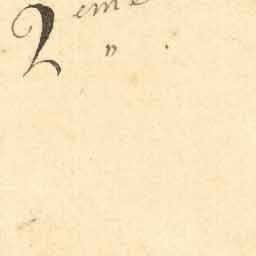 2 eme
"